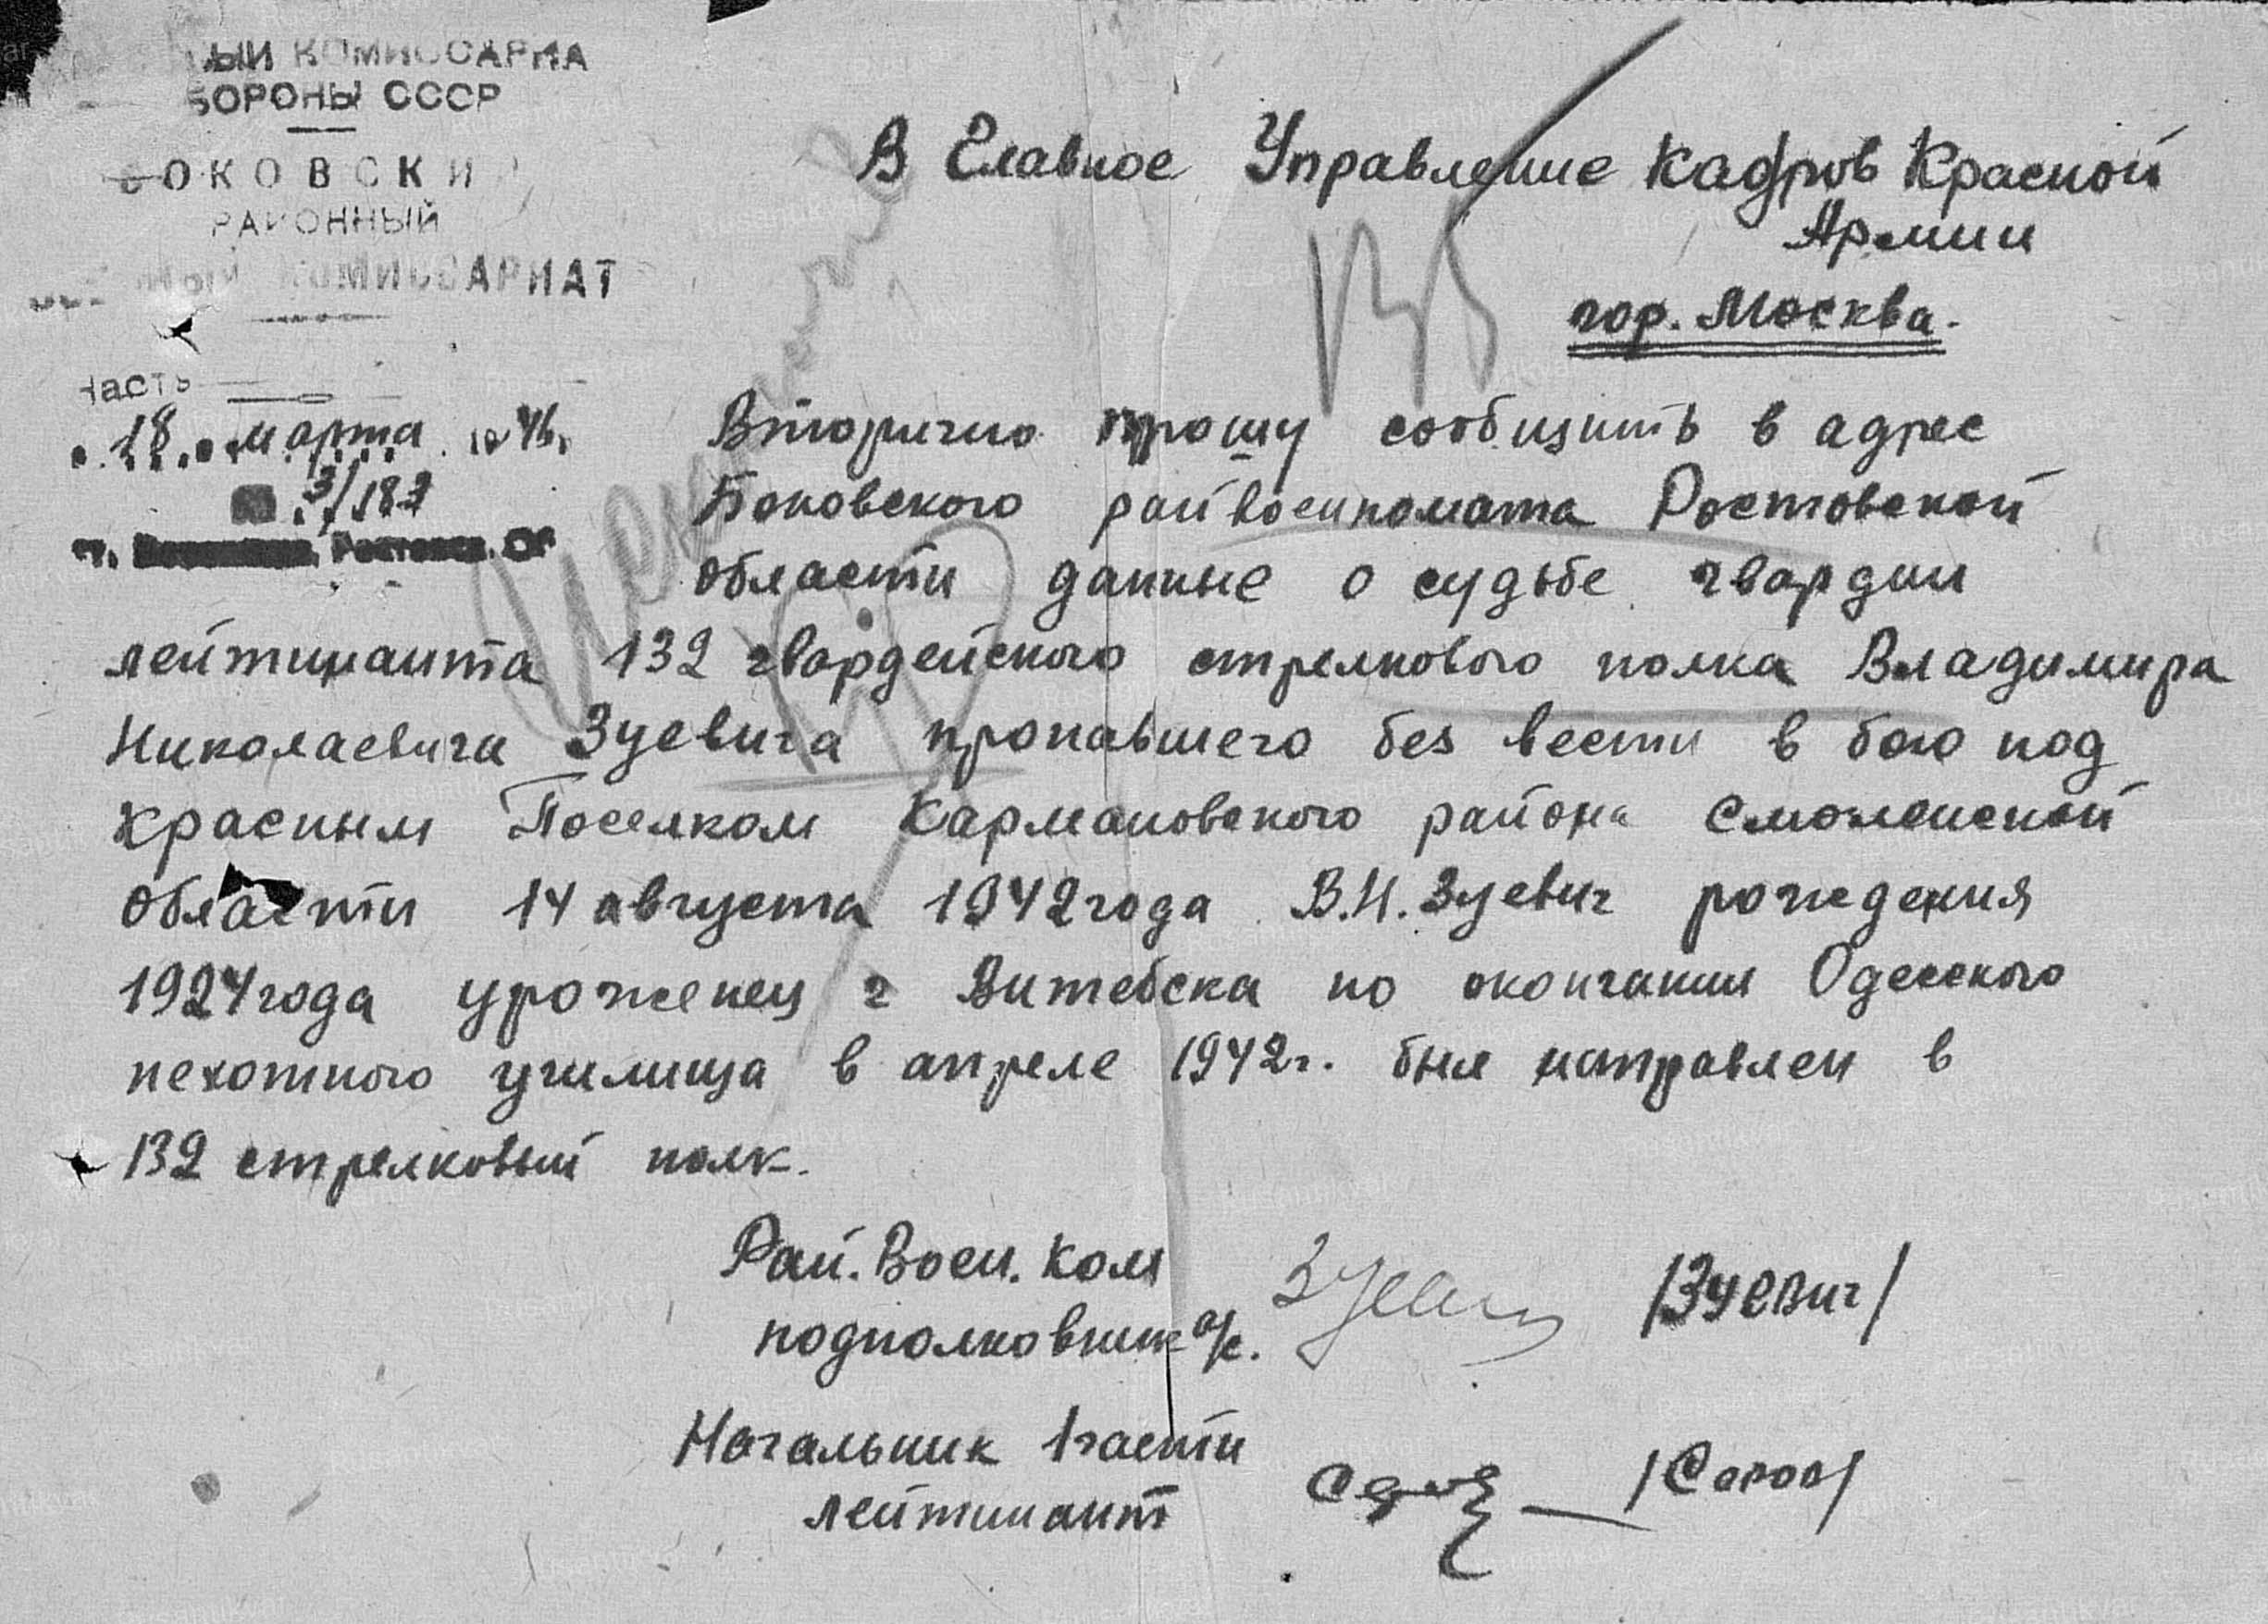 ЫЙ КОМИССАРИА
БОРОНЫ СССР
БОКОВСКИ
РАЙОННЫЙ
КОМИССАРИАТ
Часть
18 марта 1946.
3/183
Ростовск. Об
В Главное Управление Кадров Красной
Армии
гор. Москва.
Вторично прошу сообщить в адрес
Боковского райвоенкомата Ростовской
области данные о судьбе гвардии
лейтинанта 132 гвардейского стрелкового полка Владимира
Николаевича Зуевича пропавшего без вести в бою под
красным Поселком Кармановского района Смоленской
области 14 августа 1942 года В.Н. Зуевич рождения
1924 года уроженец г Витебска по окончании Одесского
пехотного училища в апреле 1942 г. был направлен в
132 стрелковый полк.
Рай. Воен. Ком Зуевич /Зуевич/
подполковник а/с.
Начальник 1 части
лейтинант